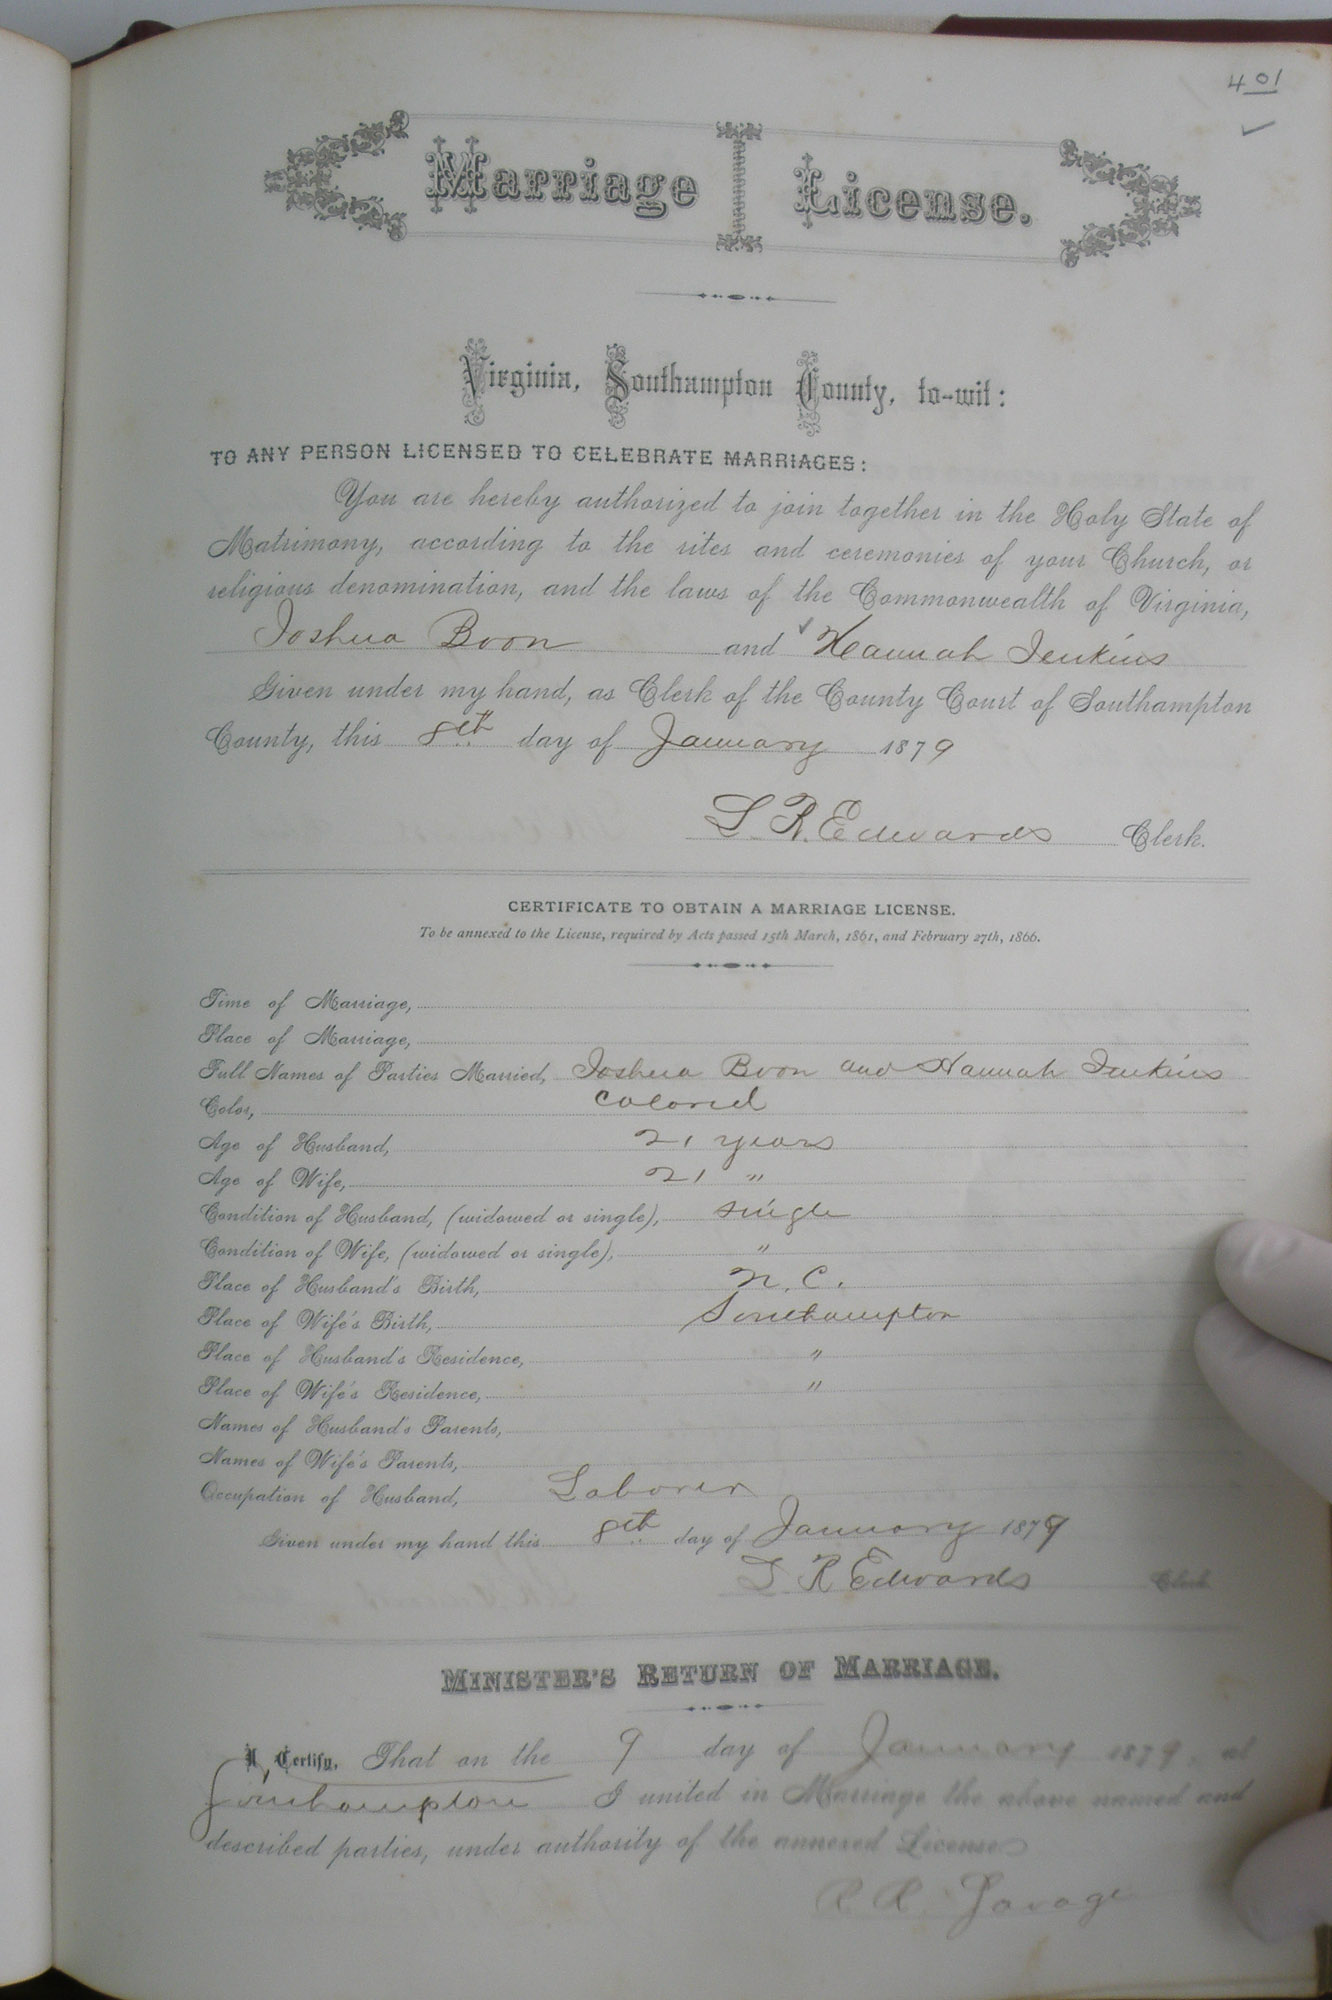 401
Marriage License.
Virginia, Southampton County, to-wit:
TO ANY PERSON LICENSED TO CELEBRATE MARRIAGES:
You are hereby authorized to join together in the Holy State of
Matrimony, according to the rites and ceremonies of your Church, or
religious denomination, and the laws of the Commonwealth of Virginia,
Joshua Boon and Hannah Jenkins
Given under my hand, as Clerk of the County Court of Southampton
County, this 8th day of January 1879
L R. Edwards Clerk.
CERTIFICATE TO OBTAIN A MARRIAGE LICENSE.
To be annexed to the License, required by Acts passed 15th March, 1861, and February 27th, 1866.
Time of Marriage,
Place of Marriage,
Full Names of Parties Married, Joshua Boon and Hannah Jenkins
Color, Colored
Age of Husband, 21 years
Age of Wife, 21 "
Condition of Husband, (widowed or single), single
Condition of Wife, (widowed or single), "
Place of Husband's Birth, N. C.
Place of Wife's Birth, Southampton
Place of Husband's Residence, "
Place of Wife's Residence, "
Names of Husband's Parents,
Names of Wife's Parents,
Occupation of Husband, Laborer
Given under my hand this 8th day of January 1879
L R Edwards Clerk
MINISTER'S RETURN OF MARRIAGE.
I Certify, That on the 9 day of January 1879, at
Southampton I united in Marriage the above named and
described parties, under authority of the annexed License
R. R. Savage